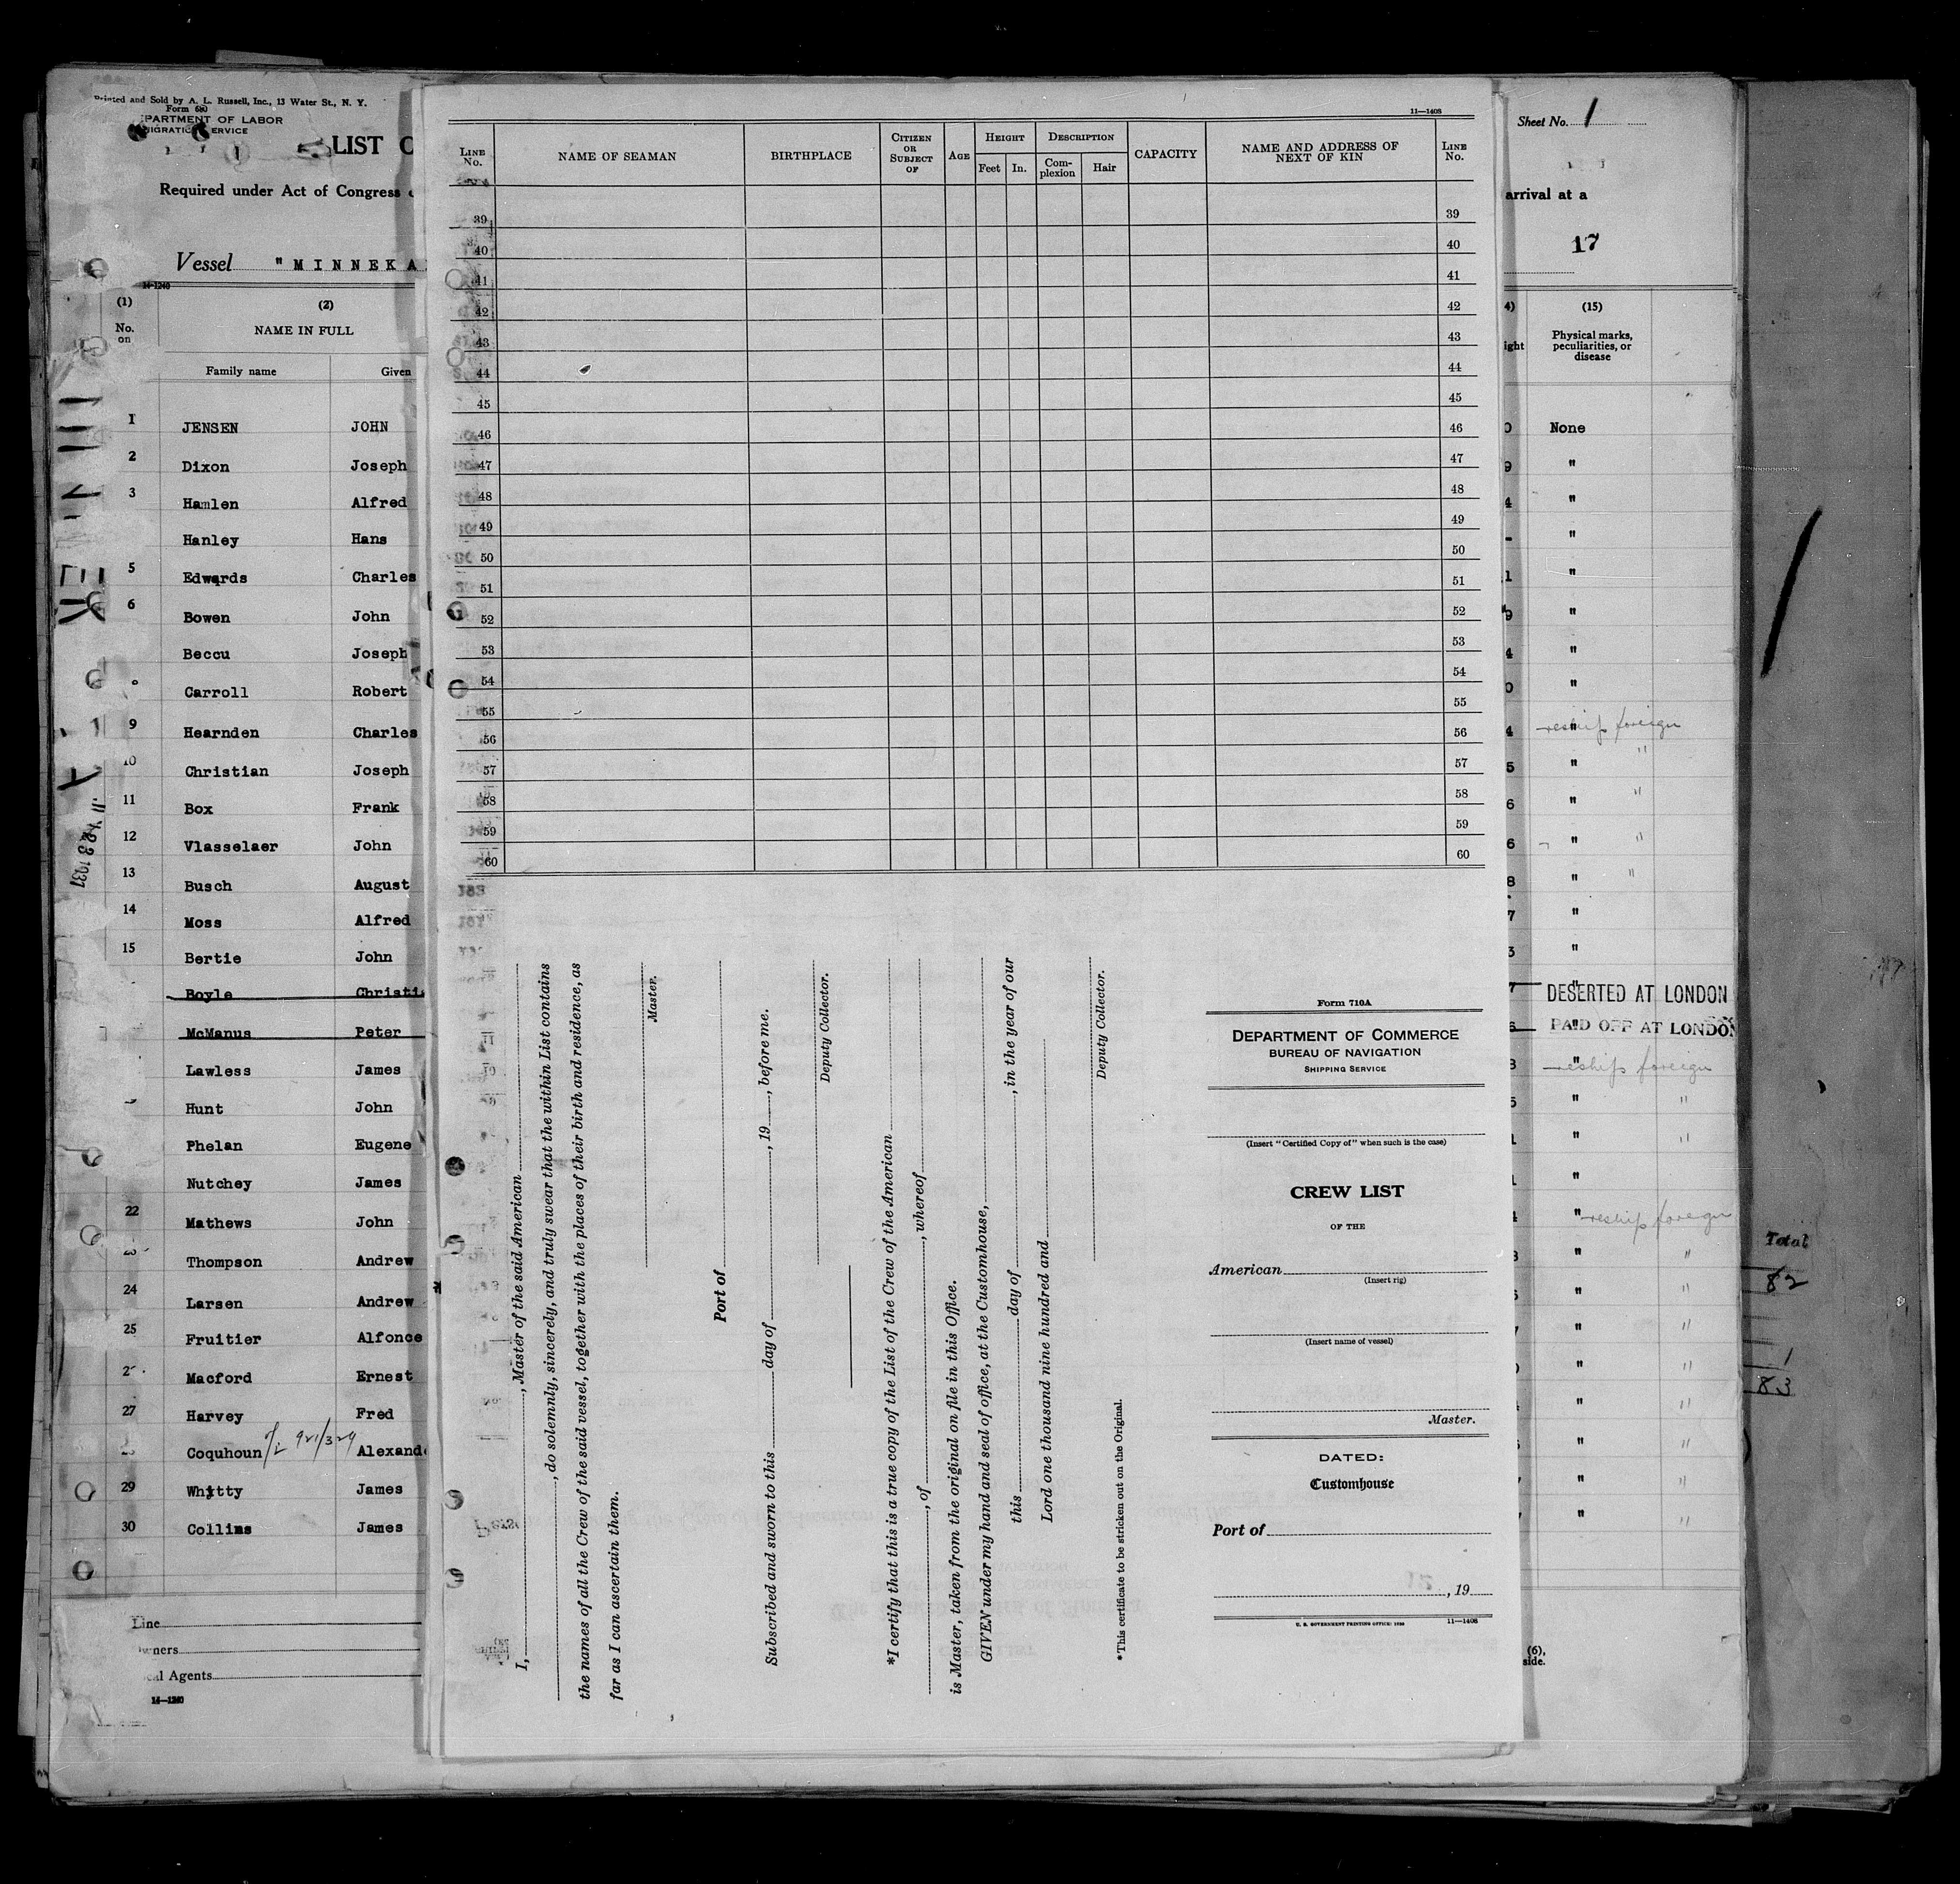 Printed and Sold by A. L. Russell, Inc., 13 Water St., N. Y.
Form 680
PARTMENT OF LABOR
MIGRATION SERVICE
LIST O
Required under Act of Congress
Vessel "MINNEKA
14-1240
(1) (2)
No. on NAME IN FULL
Family name Given
1 JENSEN JOHN
2 Dixon Joseph
3 Hamlen Alfred
Hanley Hans
5 Edwards Charles
6 Bowen John
Beccu Joseph
Carroll Robert
9 Hearnden Charles
10 Christian Joseph
11 Box Frank
12 Vlasselaer John
13 Busch August
14 Moss Alfred
15 Bertie John
Boyle Christi
McManus Peter
Lawless James
Hunt John
Phelan Eugene
Nutchey James
22 Mathews John
Thompson Andrew
24 Larsen Andrew
25 Fruitier Alfonce
Macford Ernest
27 Harvey Fred
Coquhoun 921/329 Alexand
29 Whitty James
30 Collins James
Line
wners
cal Agents
14-1240
11—1408
LINE No. NAME OF SEAMAN BIRTHPLACE CITIZEN OR SUBJECT OF AGE HEIGHT DESCRIPTION CAPACITY NAME AND ADDRESS OF NEXT OF KIN LINE No.
Feet In. Complexion Hair
39 39
40 40
41 41
42 42
43 43
44 44
45 45
46 46
47 47
48 48
49 49
50 50
51 51
52 52
53 53
54 54
55 55
56 56
57 57
58 58
59 59
60 60
I, , Master of the said American
, do solemnly, sincerely, and truly swear that the within List contains
the names of all the Crew of the said vessel, together with the places of their birth and residence, as
far as I can ascertain them.
Master.
Port of
Subscribed and sworn to this day of , 19 , before me.
Deputy Collector.
*I certify that this is a true copy of the List of the Crew of the American
, of , whereof
is Master, taken from the original on file in this Office.
GIVEN under my hand and seal of office, at the Customhouse,
this day of , in the year of our
Lord one thousand nine hundred and
Deputy Collector.
*This certificate to be stricken out on the Original.
Form 710A
DEPARTMENT OF COMMERCE
BUREAU OF NAVIGATION
SHIPPING SERVICE
(Insert "Certified Copy of" when such is the case)
CREW LIST
OF THE
American
(Insert rig)
(Insert name of vessel)
Master.
DATED:
Customhouse
Port of
, 19
U. S. GOVERNMENT PRINTING OFFICE: 1930 11—1408
Sheet No. 1
arrival at a
17
(15)
Physical marks, peculiarities, or disease
None
"
"
"
"
"
"
"
" reship foreign
" "
" "
" "
" "
"
"
" DESERTED AT LONDON
" PAID OFF AT LONDON
" reship foreign
" "
" "
"
" reship foreign
" "
" "
" "
" "
" "
" "
" "
" "
(6),
side.
Total
82
1
83